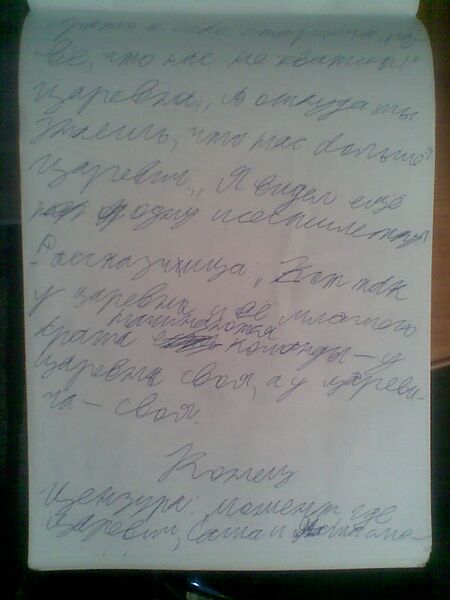 брать к себе
ве, что нас не хватит!"
Царевна: „А откуда ты
знаешь, что нас больше?"
Царевич: „Я видел ещё
одну
Рассказчица: „Вот так
у царевны и её младшего
брата начинаются команды – у
царевны своя, а у цареви-
ча – своя.
Конец
Цензура: момент где
Царевич, Саша и